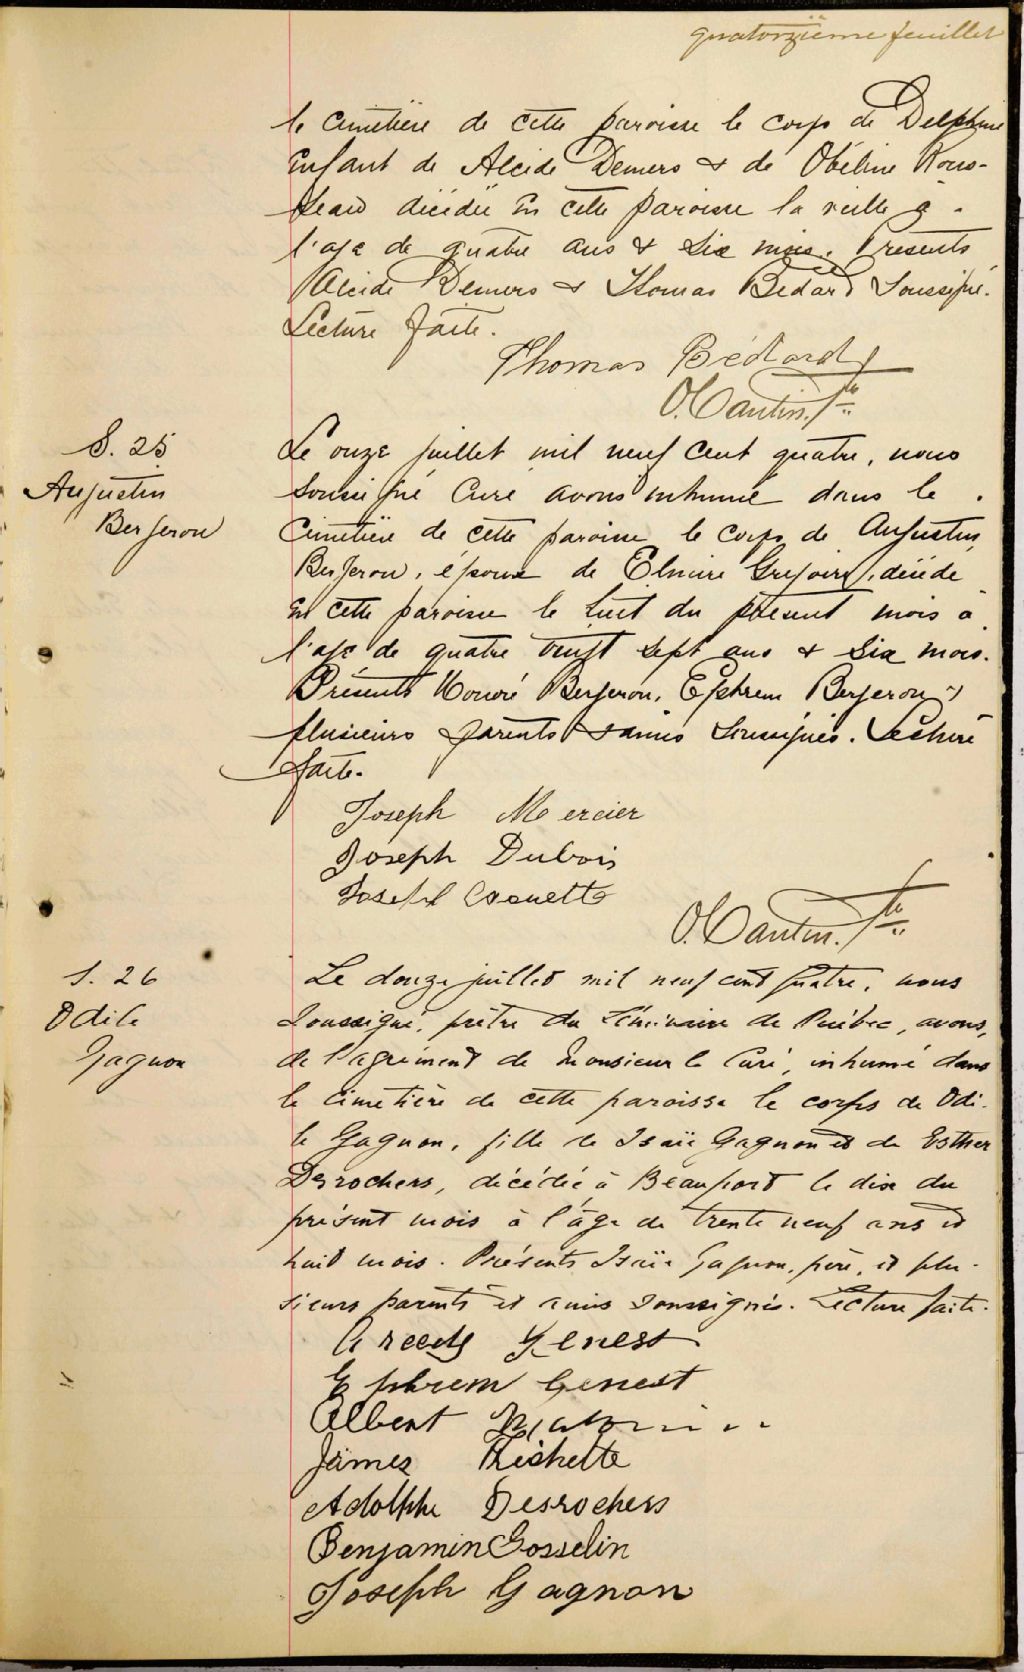 quatorzième feuillet
le cimetière de cette paroisse le corps de Delphine
enfant de Alcide Demers & de Obéline Rous-
seau décédée en cette paroisse la veille à
l'age de quatre ans & six mois. Présents
Alcide Demers & Thomas Bedard Soussigné.
Lecture faite.
Thomas Bédard
O. Cantin. Ptre
S. 25
Augustin
Bergeron
Le onze juillet mil neuf cent quatre, nous
soussigné Curé avons inhumé dans le
cimetière de cette paroisse le corps de Augustin
Bergeron, époux de Elmire Grégoire, décédé
en cette paroisse le huit du présent mois à
l'age de quatre vingt sept ans & six mois.
Présents Honoré Bergeron, Ephrem Bergeron &
plusieurs parents & amis soussignés. Lecture
faite.
Joseph Mercier
Joseph Dubois
Joseph
O. Cantin. Ptre
S. 26
Odile
Gagnon
Le douze juillet mil neuf cent quatre, nous
soussigné, prêtre du Séminaire de Québec, avons,
de l'agrément de Monsieur le Curé, inhumé dans
le cimetière de cette paroisse le corps de Odi-
le Gagnon, fille de Isaïe Gagnon et de Esther
Desrochers, décédée à Beauport le dix du
présent mois à l'âge de trente neuf ans et
huit mois. Présents Isaïe Gagnon, père, et plu-
sieurs parents et amis soussignés. Lecture faite.
Genest
Ephrem Genest
Albert
James Rishette
Adolphe Desrochers
Benjamin Gosselin
Joseph Gagnon